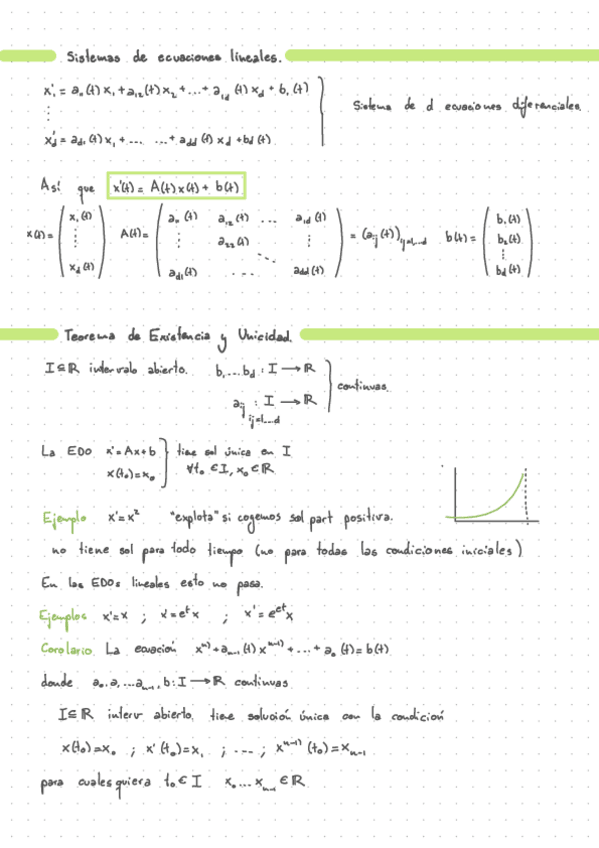 Sistemas de ecuaciones lineales.
x'₁ = a₁₁(t)x₁ + a₁₂(t)x₂ + ... + a₁d(t)x_d + b₁(t)
⋮
Sistema de d ecuaciones diferenciales.
x'_d = a_d₁(t)x₁ + ... ... + a_dd(t)x_d + b_d(t)
Así que x'(t) = A(t)x(t) + b(t)
x(t) = (x₁(t) ⋮ x_d(t)) A(t) = (a₁₁(t) a₁₂(t) ... a₁d(t) ⋮ a₂₂(t) ⋮ ⋱ a_d₁(t) ... a_dd(t)) = (a_ij(t))_ij=1...d b(t) = (b₁(t) b₂(t) ⋮ b_d(t))
Teorema de Existencia y Unicidad.
I⊆ℝ intervalo abierto. b₁...b_d : I → ℝ
continuas.
a_ij : I → ℝ
ij=1...d
La EDO x' = Ax+b tiene sol única en I
x(t₀)=x₀ ∀t₀ ∈ I, x₀ ∈ ℝ
Ejemplo x'=x² "explota" si cogemos sol part positiva.
no tiene sol para todo tiempo (no para todas las condiciones iniciales)
En las EDOs lineales esto no pasa.
Ejemplos x'=x ; x'=e^t x ; x'=e^{e^t} x
Corolario. La ecuación x^(n) + a_{n-1}(t) x^(n-1) + ... + a₀(t) = b(t)
donde a₀, a₁...a_{n-1}, b : I → ℝ continuas
I⊆ℝ interv abierto, tiene solución única con la condición
x(t₀)=x₀ ; x'(t₀)=x₁ ; --- ; x^(n-1)(t₀)=x_{n-1}
para cualesquiera t₀ ∈ I x₀...x_{n-1} ∈ ℝ